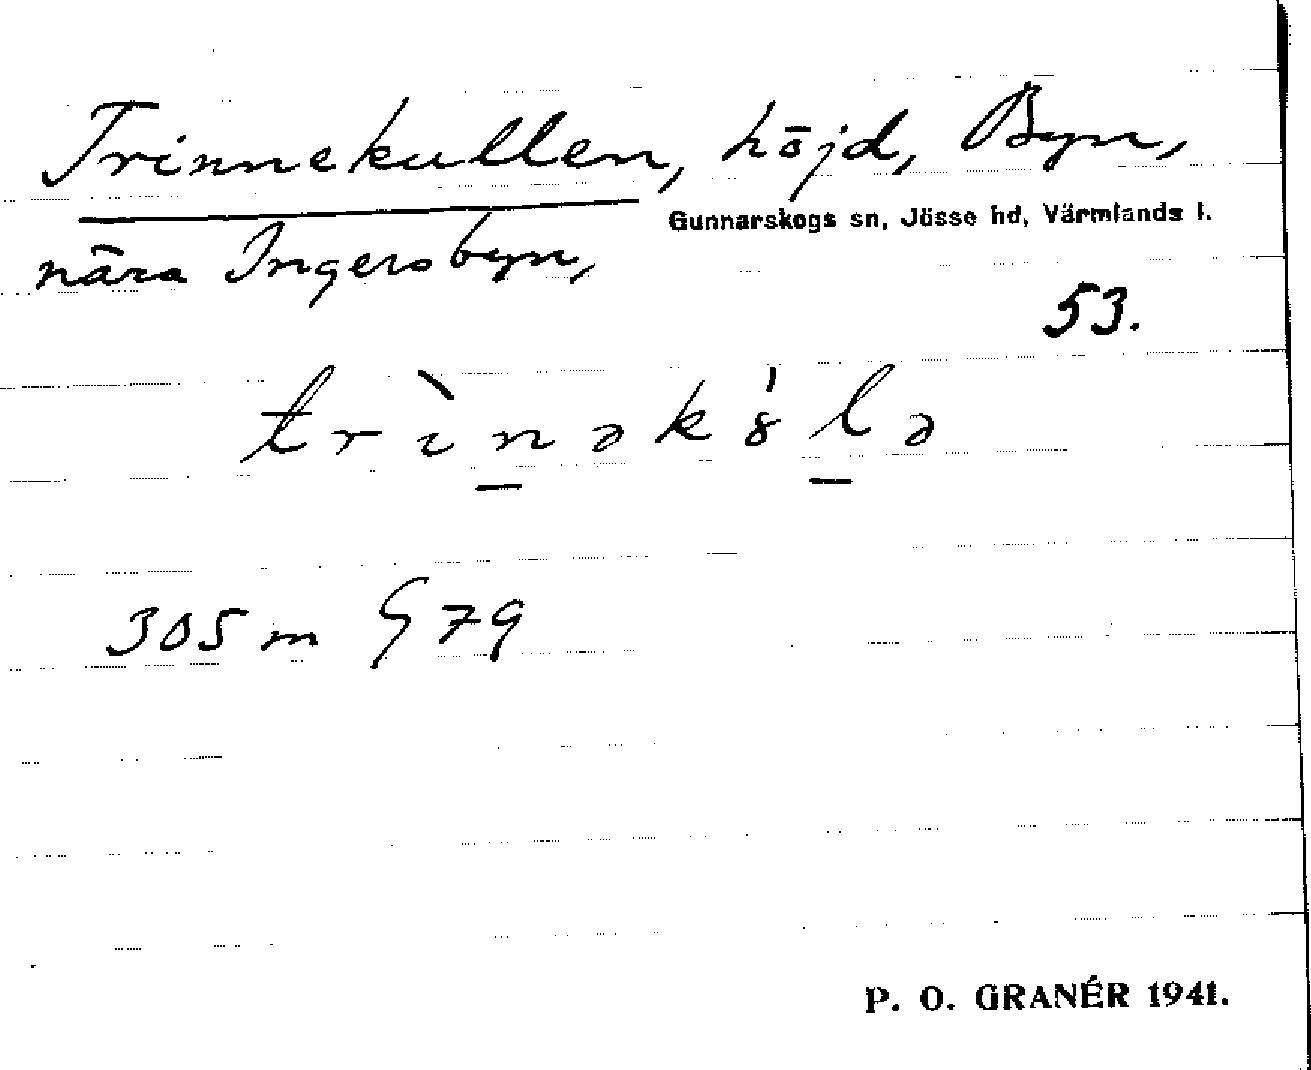 Trinnekullen, höjd, Byn,
Gunnarskogs sn, Jösse hd, Värmlands l.
nära Ingersbyn,
53.
trìnəkɞ́lə
305 m G 79
P. O. GRANÉR 1941.